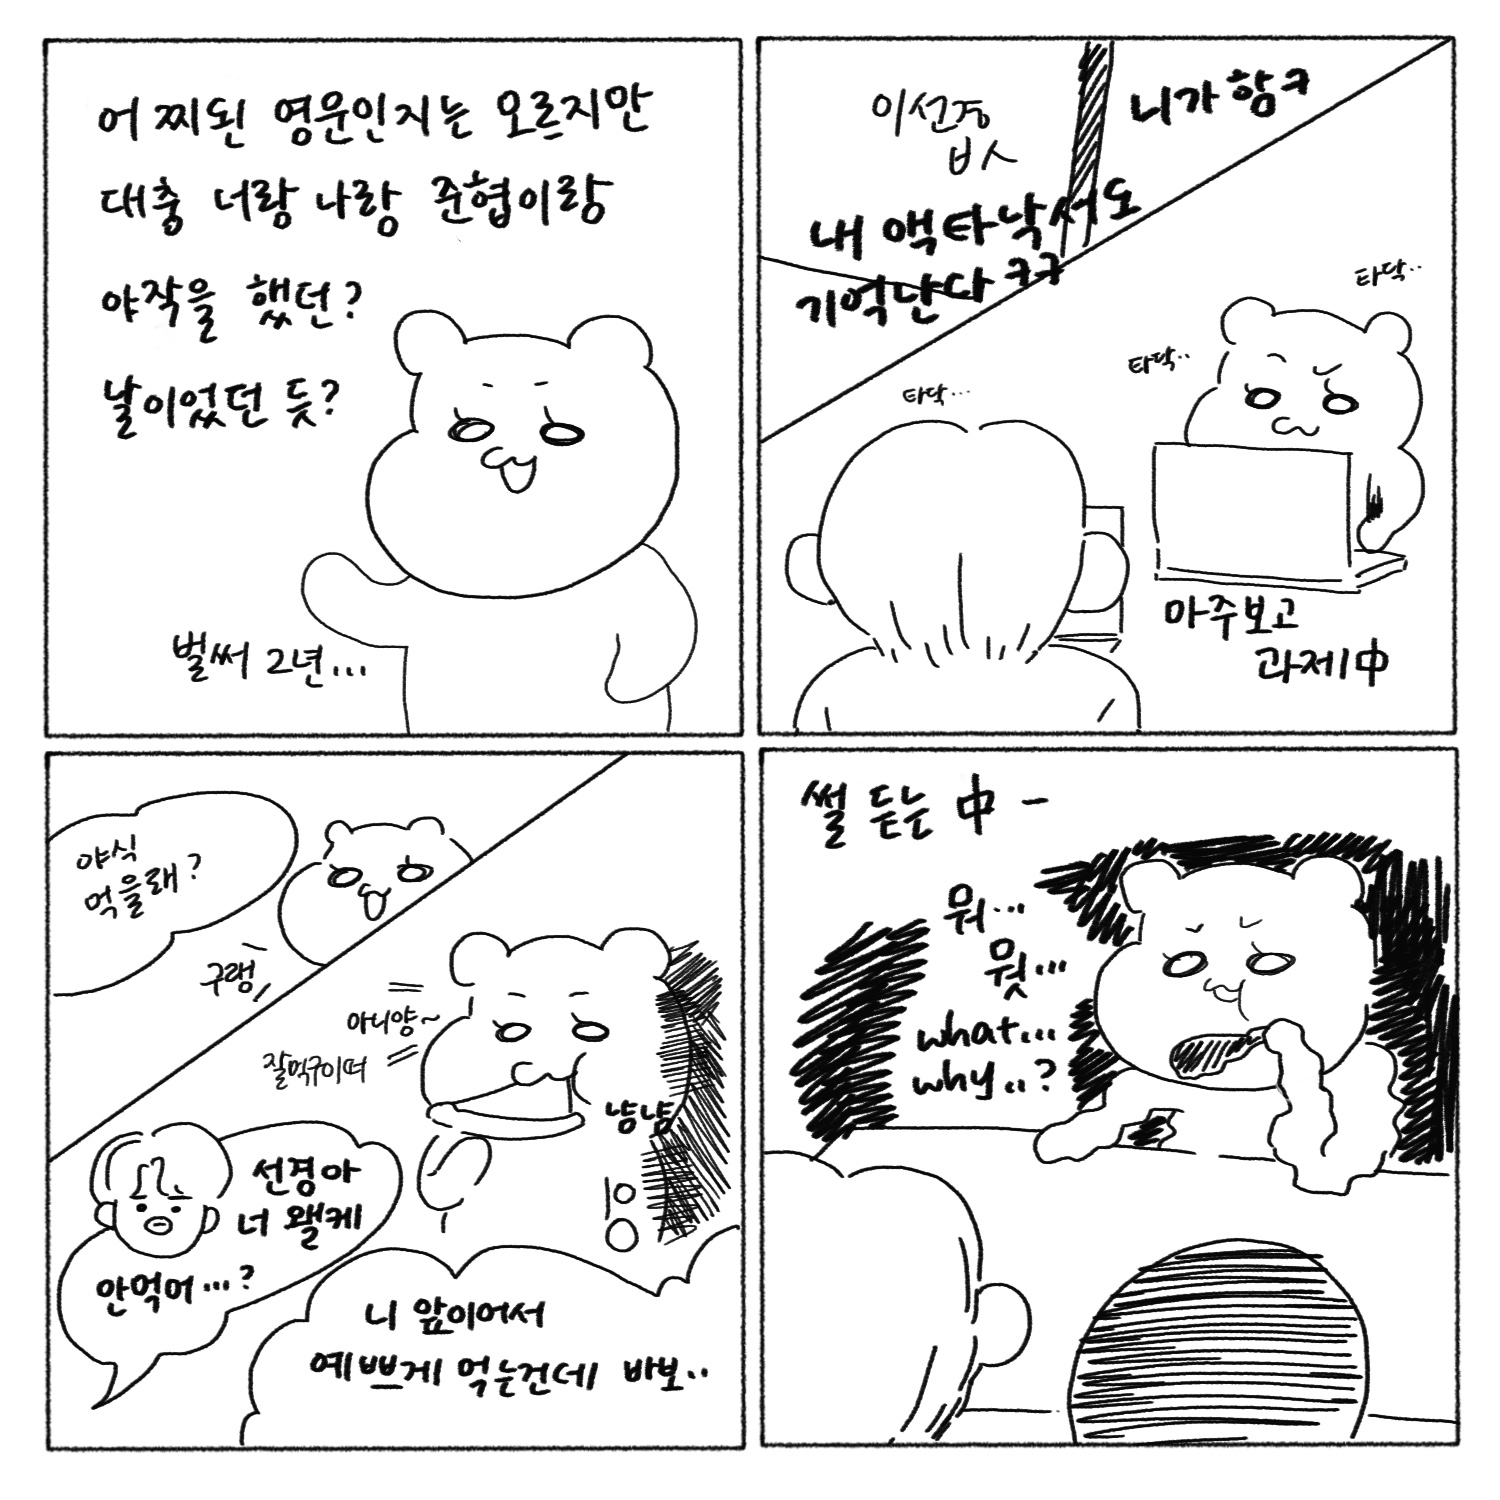 어찌된 영운인지는 오르지만
대충 너랑 나랑 준협이랑
야작을 했던?
날이었던 듯?
벌써 2년...
이선경
ㅂㅅ
니가 함ㅋ
내 책타낙서도
기억난다 ㅋㅋ
타닥...
타닥..
타닥..
마주보고
과제中
야식
먹을래?
구랭!
아니양~
잘먹구이떠
냠냠
선경아
너 왤케
안먹어...?
니 앞이어서
예쁘게 먹는건데 바보..
썰 듣는 中 -
뭐...
뭣...
what...
why..?